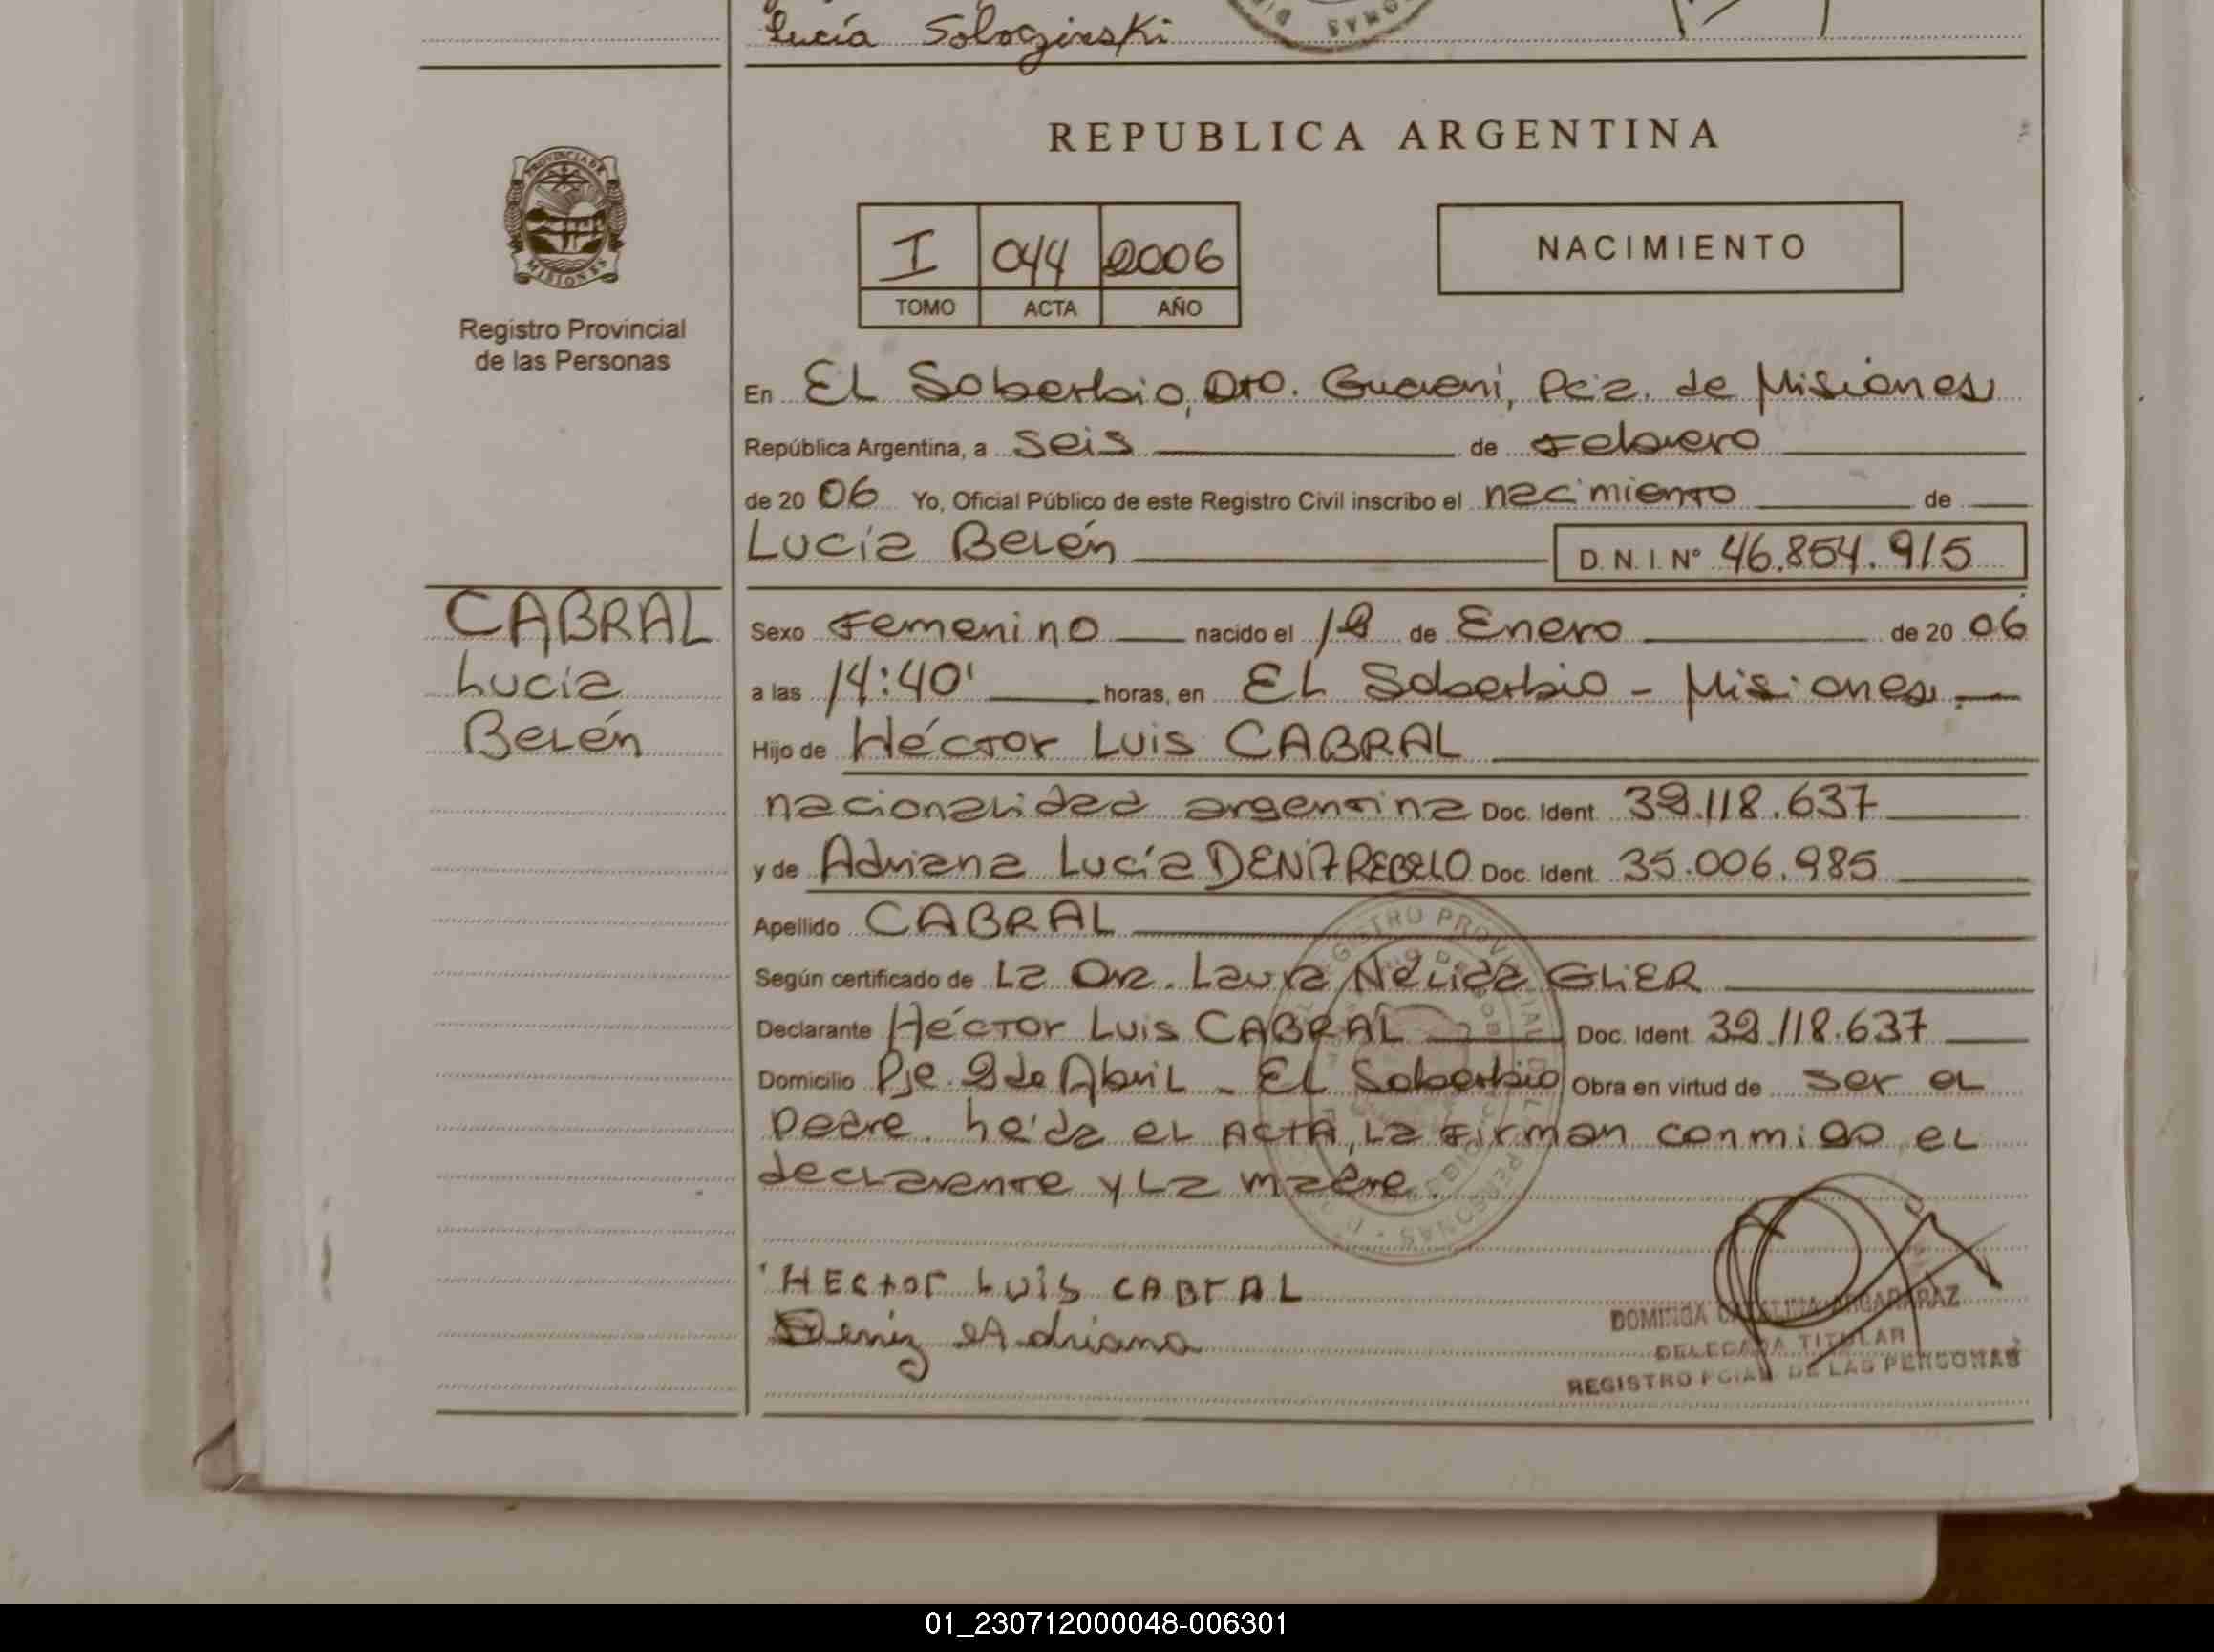 Lucía Sologinski
REPUBLICA ARGENTINA
PROVINCIA DE
MISIONES
Registro Provincial
de las Personas
I 044 2006
TOMO ACTA AÑO
NACIMIENTO
En El Soberbio, Dto. Guaraní, Pcia. de Misiones
República Argentina, a seis de Febrero
de 20 06 Yo, Oficial Público de este Registro Civil inscribo el nacimiento de
Lucía Belén D. N. I. N° 46.854.915
CABRAL
Lucía
Belén
Sexo Femenino nacido el de Enero de 20 06
a las 14:40' horas, en El Soberbio - Misiones.
Hijo de Héctor Luis CABRAL
nacionalidad argentina Doc. Ident. 39.118.637
y de Adriana Lucía DENIZ REBELO Doc. Ident. 35.006.985
Apellido CABRAL
Según certificado de La Dra. Laura Nélida GLIER
Declarante Héctor Luis CABRAL Doc. Ident. 39.118.637
Domicilio Pje. 2 de Abril - El Soberbio Obra en virtud de ser el
padre. Leída el ACTA, la firman conmigo el
declarante y la madre.
HEctor Luis CABrAL
Deniz Adriana
DOMINGA CATALINA ARGARARAZ
DELEGADA TITULAR
REGISTRO PCIAL DE LAS PERSONAS
01_230712000048-006301